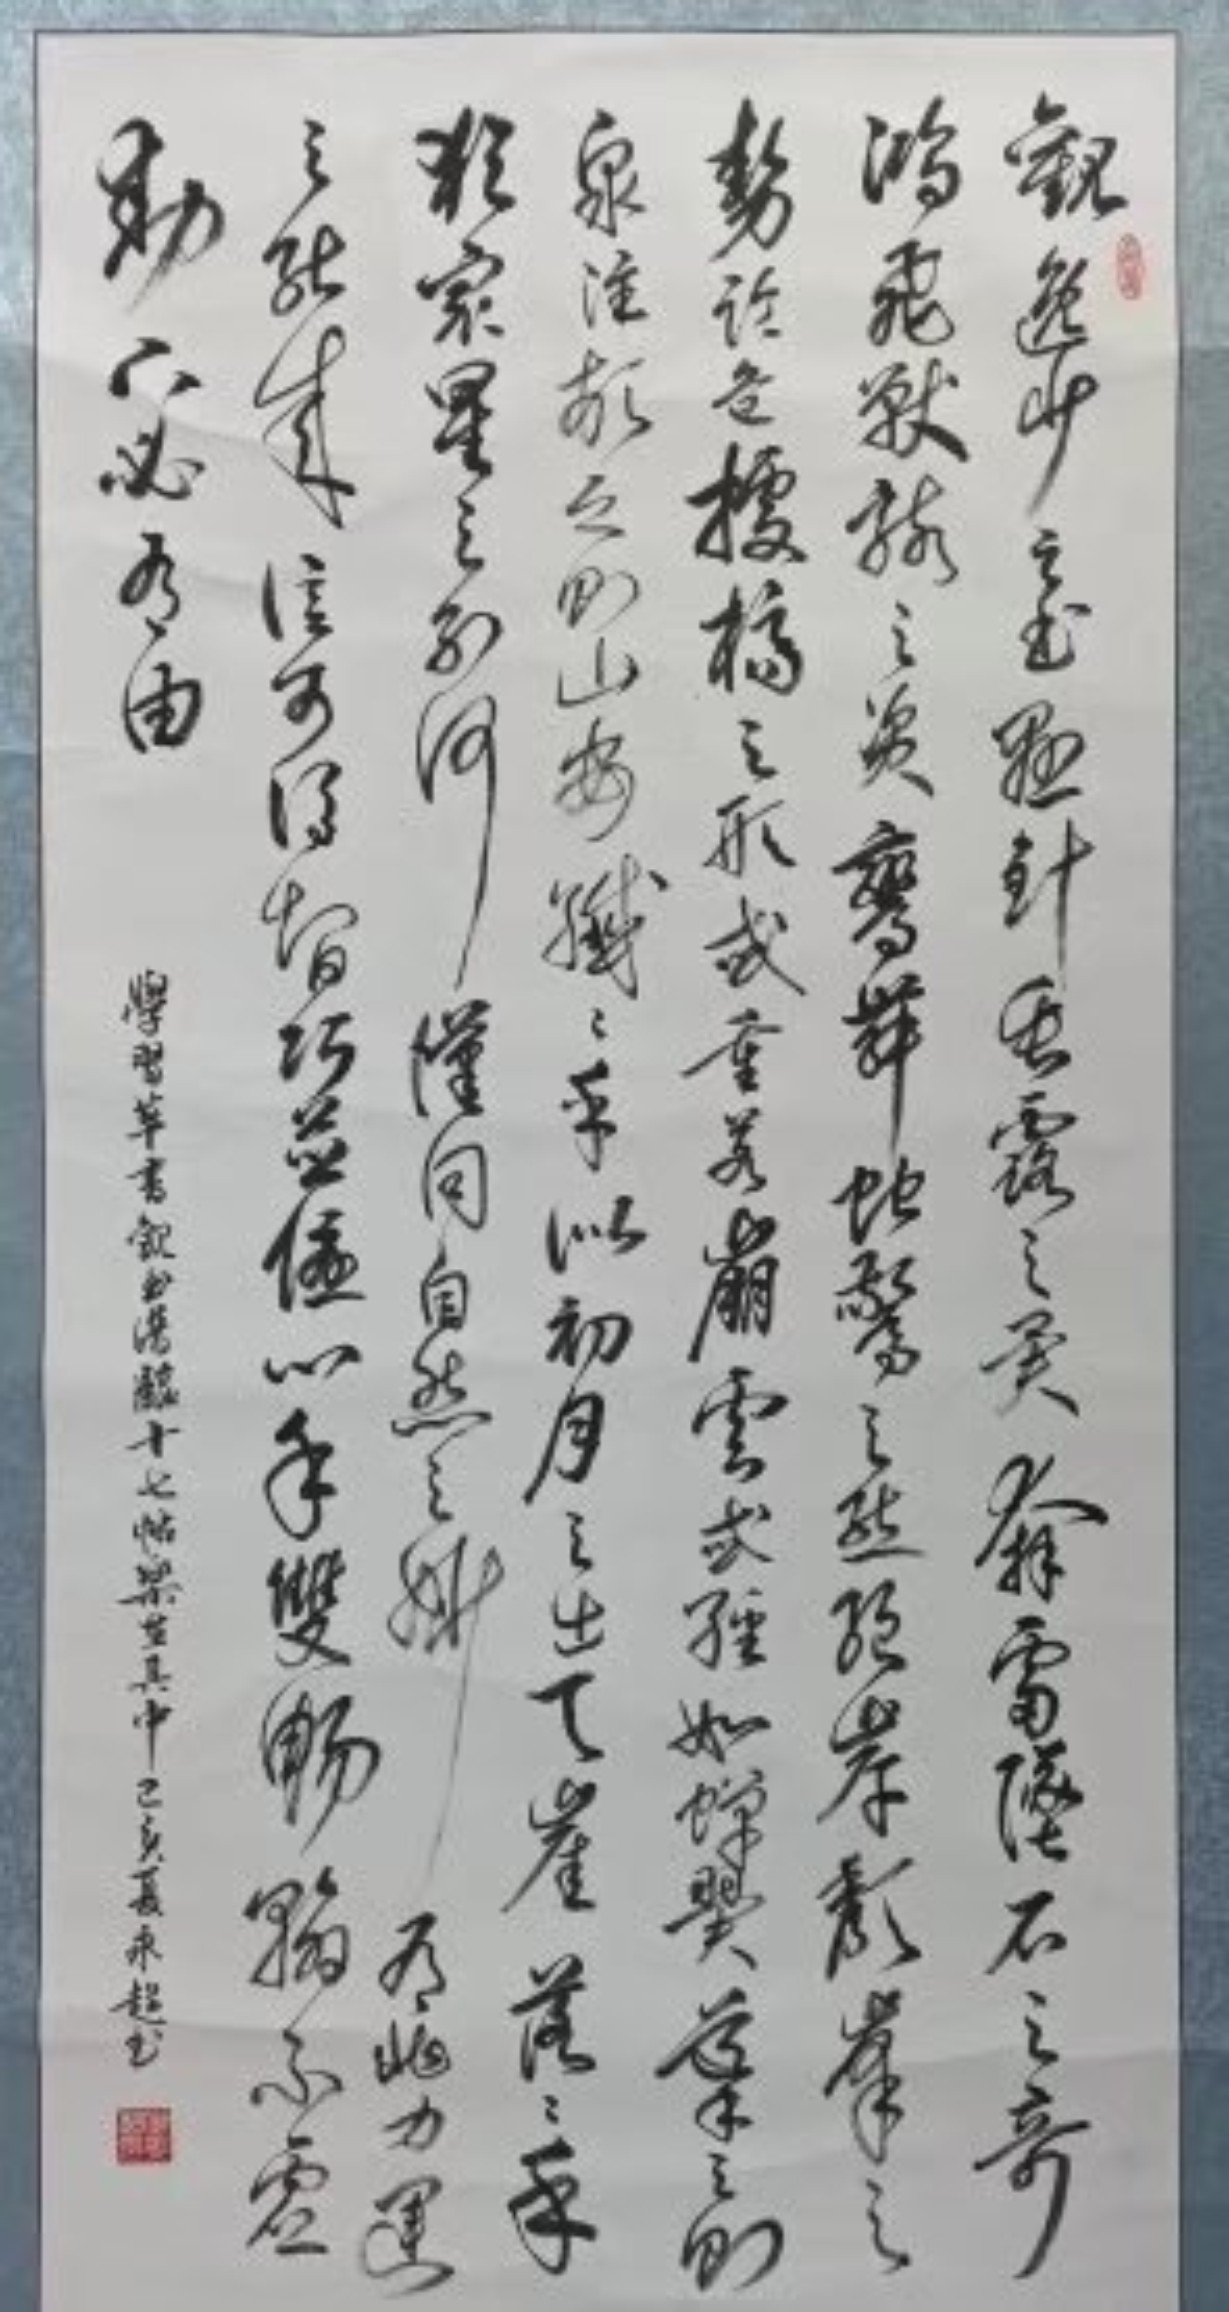 觀逸少之書懸針垂露之異奔雷墜石之奇
鴻飛獸駭之資鸞舞蛇驚之態絕岸頹峯之
勢臨危據槁之形或重若崩雲或輕如蟬翼導之則
泉注頓之則山安纖〻乎似初月之出天崖落〻乎
猶眾星之列河漢同自然之妙有非力運
之能成信可謂智巧並優心手雙暢翰不虛
動下必有由
學習草書觀書譜臨十七帖樂在其中己亥夏永超書